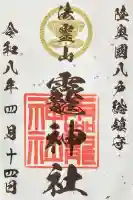 陸奥國八戸総鎮守
法霊山
龗神社
令和八年四月十四日